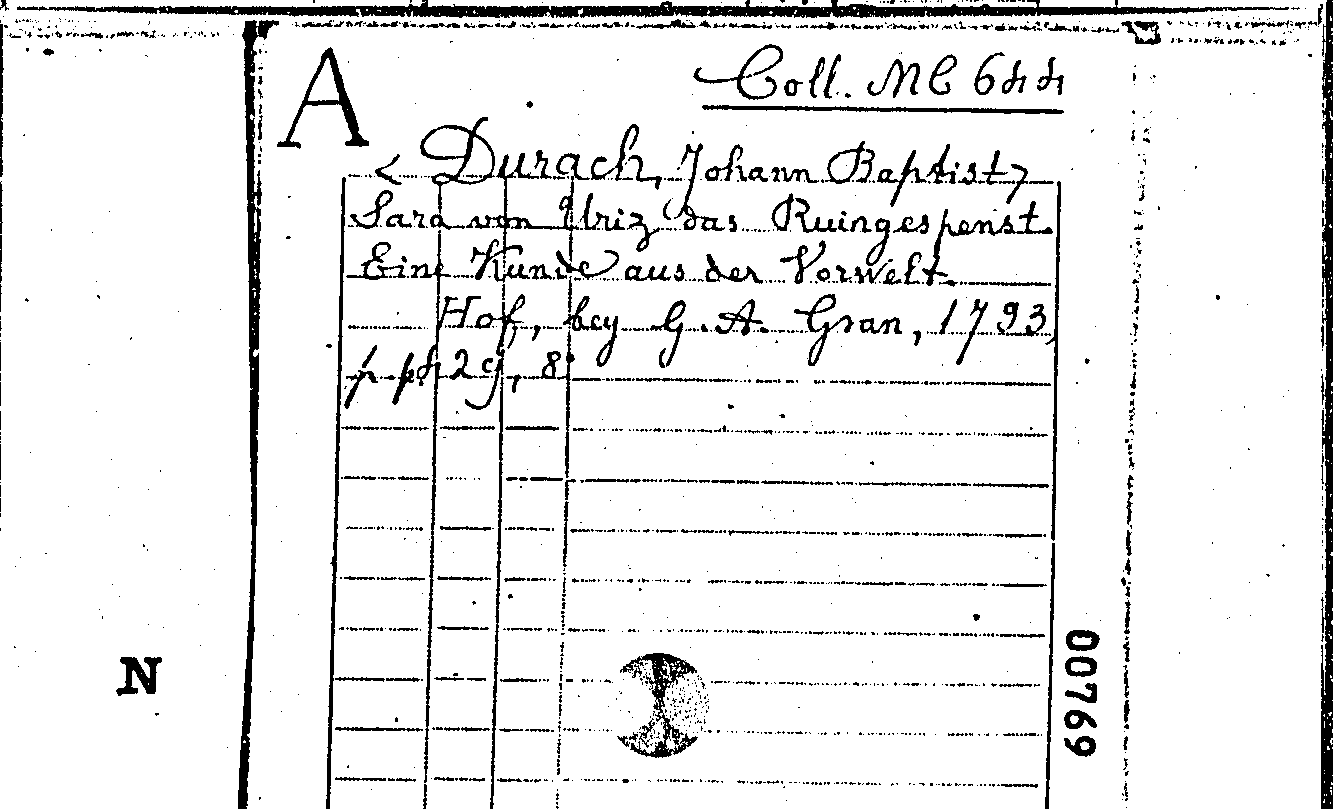 A
Coll. MC 644
< Durach, Johann Baptist >
Sara von Uriz das Ruingespenst.
Eine Kunde aus der Vorwelt.
Hof, bey G. A. Grau, 1793,
pp 429, 8°
N
00769